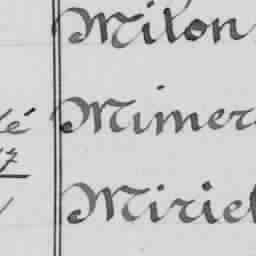 Milon
é Mimer
7
Miriel